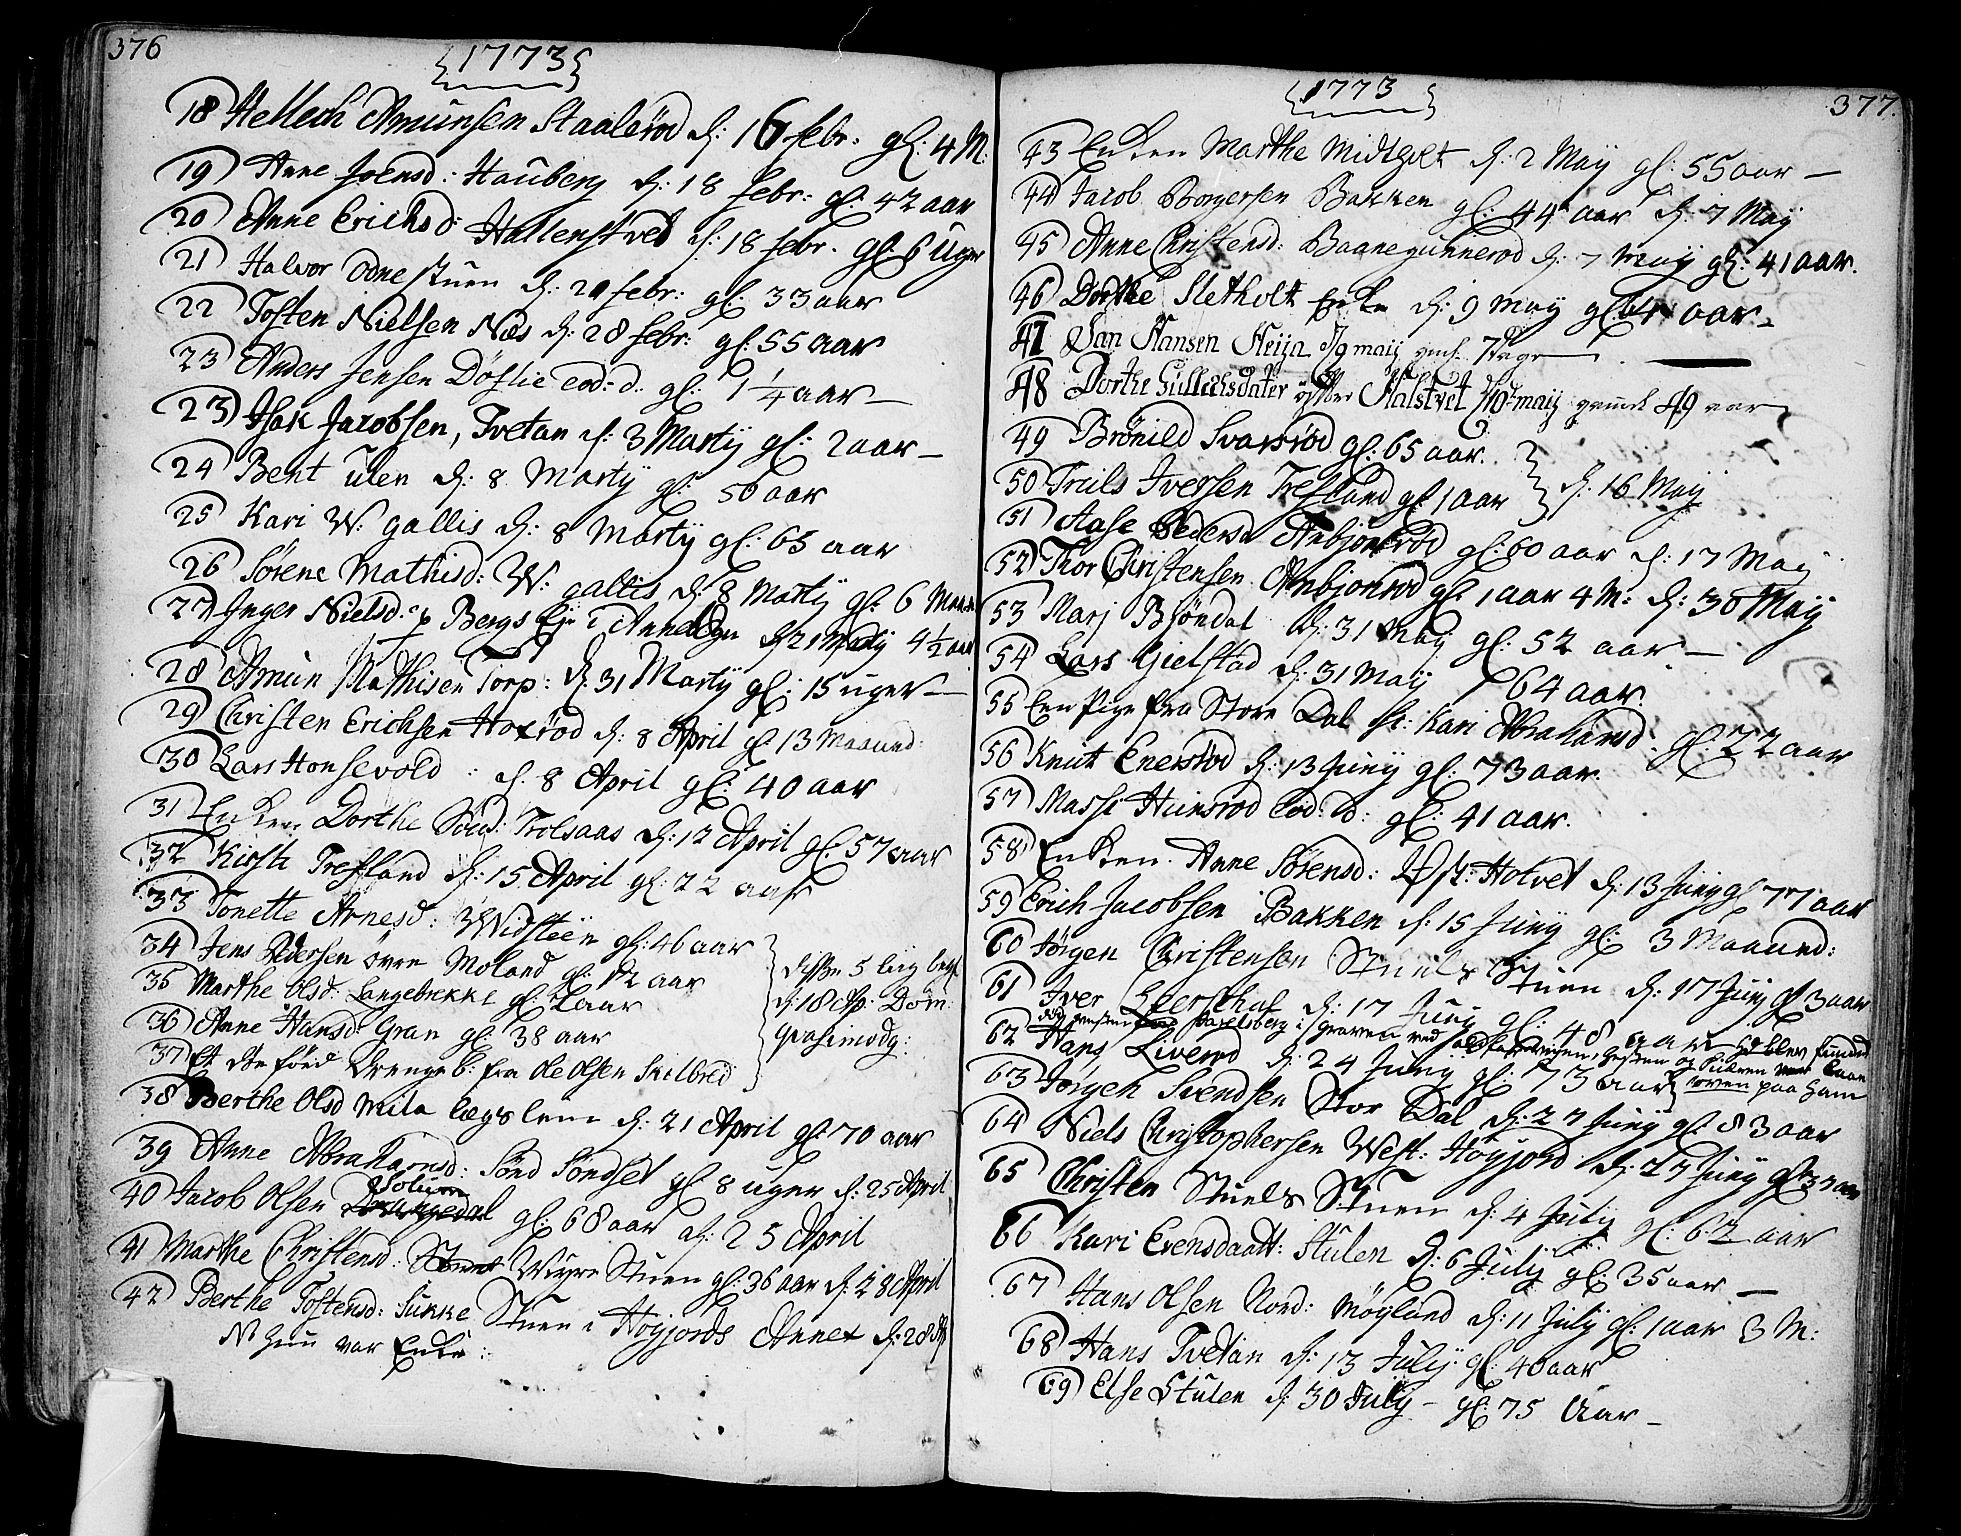 376
1773
18 Hellech Amunsen Staalerød d: 16 febr: gl: 4 M:
19 Anne Joensd: Hauberg d: 18 febr: gl: 42 aar
20 Anne Erichsd: Hallenstved d: 18 febr. gl: 6 uger
21 Halvor Odne stuen d: febr: gl: 33 aar
22 Tosten Nielsen Næs d: 28 febr: gl: 55 aar
23 Anders Jensen Døflie eod: d. gl: 1 1/4 aar —
23 Isak Jacobsen, Tvetan d: 3 Martÿ gl: 2 aar —
24 Bent Ulen d: 8 Martÿ gl: 56 aar
25 Kari W: gallis d: 8 Martÿ gl: 65 aar
26 Sørene Mathisd: W: gallis d: 8 Martÿ gl: 6
27 Inger Nielsd: p Bergs Eje i d 21 4 1/2 aar
28 Amun Mathisen Torp: d: 31 Martÿ gl: 15 uger —
29 Christen Erichsen Hoxrød d: 8 April gl: 13 Maaned:
30 Lars Honsevold : d. 8 April gl: 40 aar
31 Enken Dorthe Trolsaas d: 12 April gl: 57 aar
32 Kirsti Trefland d: 15 April gl: 22 aar
33 Tonette Arnesd: Widsteen gl: 46 aar
34 Jens Pedersen øvre Moland gl: 12 aar
35 Marthe Olsd: Langebrekke gl: aar
36 Anne Hansd: Gran gl: 38 aar
37 Et døe føed Drengeb: fra Ole Olsen Skilbred
disse 5 liig begr
d: 18 Ap: Dom:
quasimodg:
38 Berthe Olsd Mila lægs lem d: 21 April gl: 70 aar
39 Anne Abrahamsd: Sønd Sondset gl: 8 uger d: 25 April
40 Jacob Olsen Solum gl: 68 aar d: 25 April
41 Marthe Christensd: Wiyre Stuen gl: 36 aar d: 28 April
42 Berthe Tostensd: Sukke Stuen i Høyjords Annex d: 28 Ap
NB hun var Enke:
377.
1773
43 Enken Marthe Midtholt d: 2 Maÿ gl: 55 aar —
44 Jacob Borgersen Bakken gl: 44 aar d: 7 Maÿ
45 Anne Christensd: Baanegunnerød d: 7 Maÿ gl: 41 aar.
46 Dorthe Sletholt Enke d: 9 Maÿ gl: 64 aar —
47 Jan Hansen Heija d/9 maij gml. 7 Dage
48 Dorthe Gullichsdater Halstvet 10 maij 49 aar
49 Brønild Svarsrød gl: 65 aar.
50 Truls Iversen Trefland gl: 1 aar
d: 16 Maÿ
51 Aase Pedersd Anbjonrød gl: 60 aar d: 17 Maÿ
52 Thor Christensen Anbjonrød gl: 1 aar 4 M: d: 30 Maÿ
53 Marj Bjøndal d: 31 Maÿ gl: 52 aar —
54 Lars Gielstad d: 31 Maÿ 64 aar.
55 Een Pige fra Store Dal Kari Abrahamsd: gl: 22 aar
56 Knut Enersrød d: 13 Junÿ gl: 73 aar.
57 Masse Hunsrød eod: d: gl: 41 aar.
58 Enken Anne Sørensd: Øst: Hotvet d: 13 Junÿ gl 77 aar
59 Erich Jacobsen Bakken d: 15 Junÿ gl: 3 Maaned:
60 Jørgen Christensen Stuels Stuen d: 17 Junÿ gl 3 aar
61 Iver d: 17 Junÿ gl: 48 aar
62 Hans Liverød d: 24 Junÿ gl: 73 aar
63 Jørgen Svendsen Stor Dal d: 27 Junÿ gl: 83 aar
64 Niels Christophersen West: Høyjord d: 27 Junÿ gl
65 Christen Stuels Stuen d: 4 Julÿ gl: 62 aar
66 Kari Evensdaatt: Stulen d: 6 Julÿ gl: 35 aar —
67 Hans Olsen Nord: Møyland d: 11 Julÿ gl: 1 aar 3 M:
68 Hans Tvetan d: 13 Julÿ gl: 40 aar
69 Else Stulen d: 30 Julÿ – gl: 75 Aar —